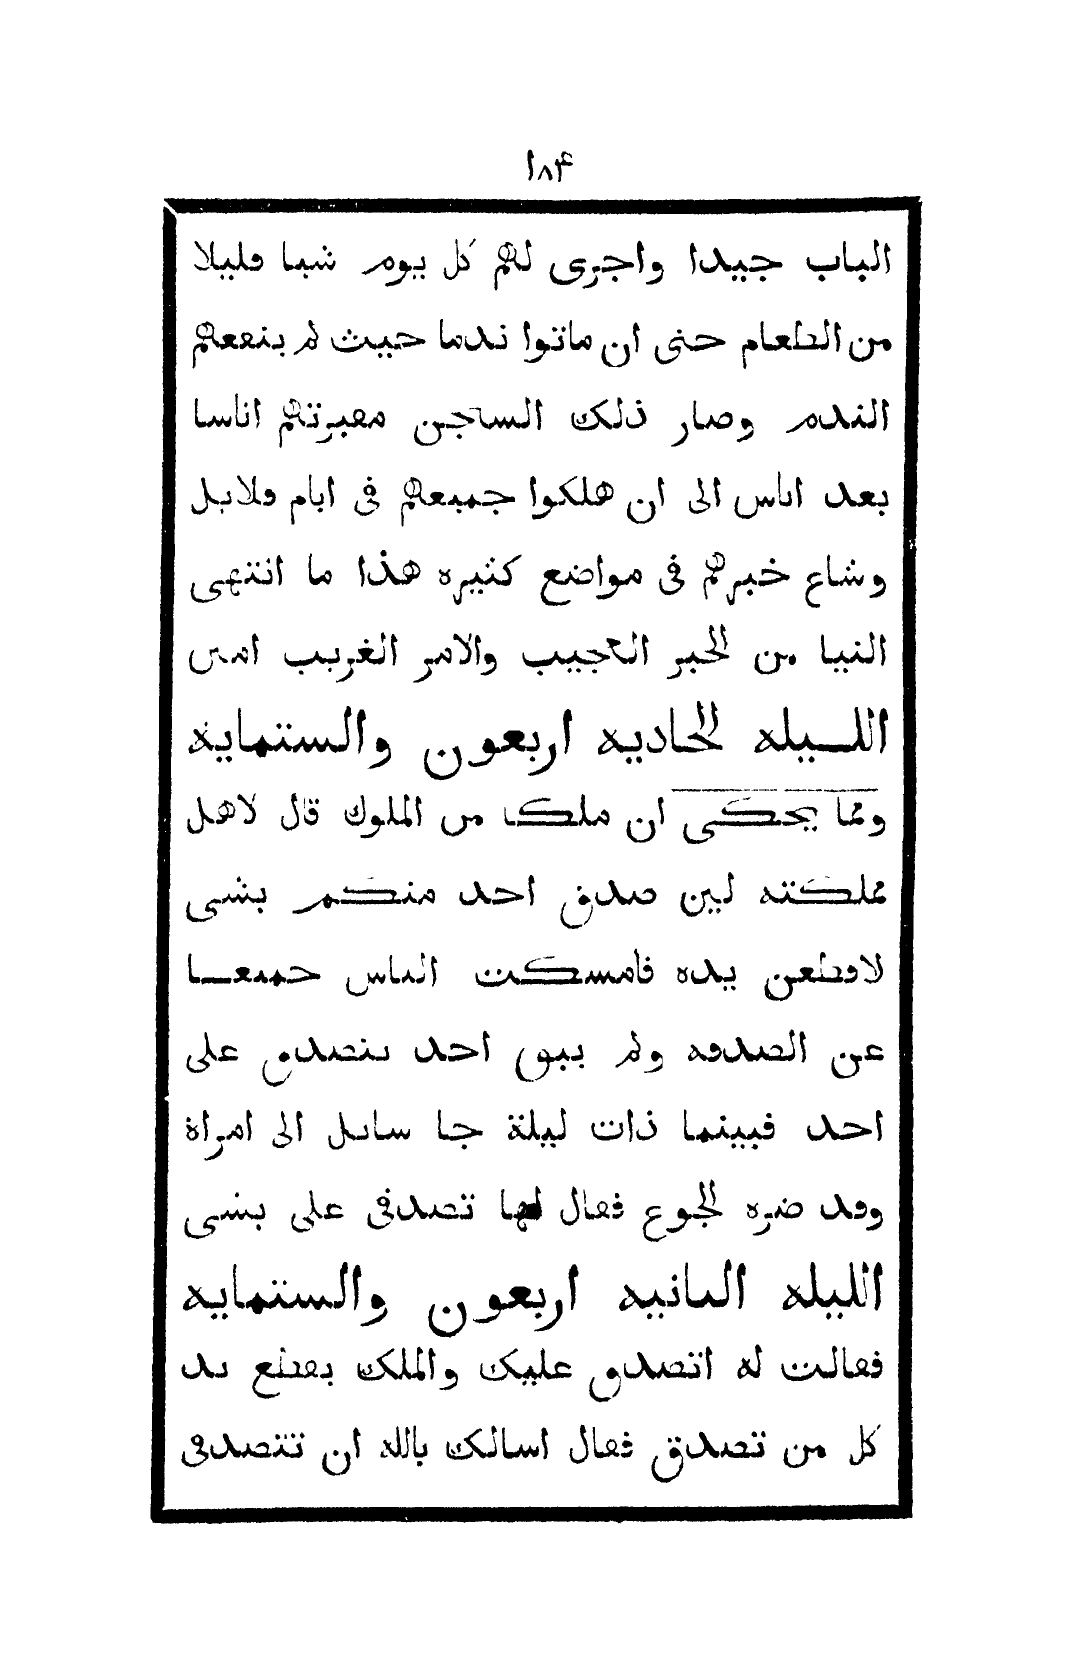 ١٨۴
الباب جيدا واجرى لهم كل يوم شيا قليلا
من الطعام حتى ان ماتوا ندما حيث لم ينفعهم
الندم وصار ذلك الساجن مقبرتهم اناسا
بعد اناس الى ان هلكوا جميعهم فى ايام قلايل
وشاع خبرهم فى مواضع كثيره هذا ما انتهى
الينا من الخبر العجيب والامر الغريب امين
الليله الحاديه اربعون والستمايه
ومما يحكى ان ملكا من الملوك قال لاهل
مملكته لين صدق احد منكم بشى
لاقطعن يده فامسكت الناس جميعا
عن الصدقه ولم يبق احد يتصدق على
احد فبينما ذات ليلة جا سايل الى امراة
وقد ضره الجوع فقال لها تصدقى على بشى
الليله الثانيه اربعون والستمايه
فقالت له اتصدق عليك والملك يقطع يد
كل من تصدق فقال اسالك بالله ان تتصدقى